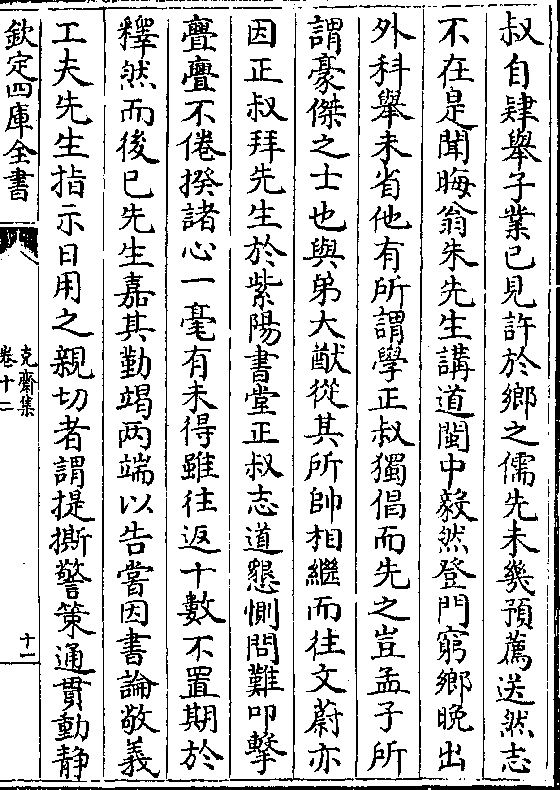 叔自肄舉子業已見許於鄉之儒先未幾預薦送然志
不在是聞晦翁朱先生講道閩中毅然登門窮鄉晚出
外科舉未省他有所謂學正叔獨倡而先之豈孟子所
謂豪傑之士也與弟大猷從其所帥相繼而往文蔚亦
因正叔拜先生於紫陽書堂正叔志道懇惻問難叩擊
亹亹不倦揆諸心一毫有未得雖往返十數不置期於
釋然而後已先生嘉其勤竭两端以告嘗因書論敬義
工夫先生指示日用之親切者謂提撕警策通貫動静
欽定四庫全書
克齋集
卷十二
十一